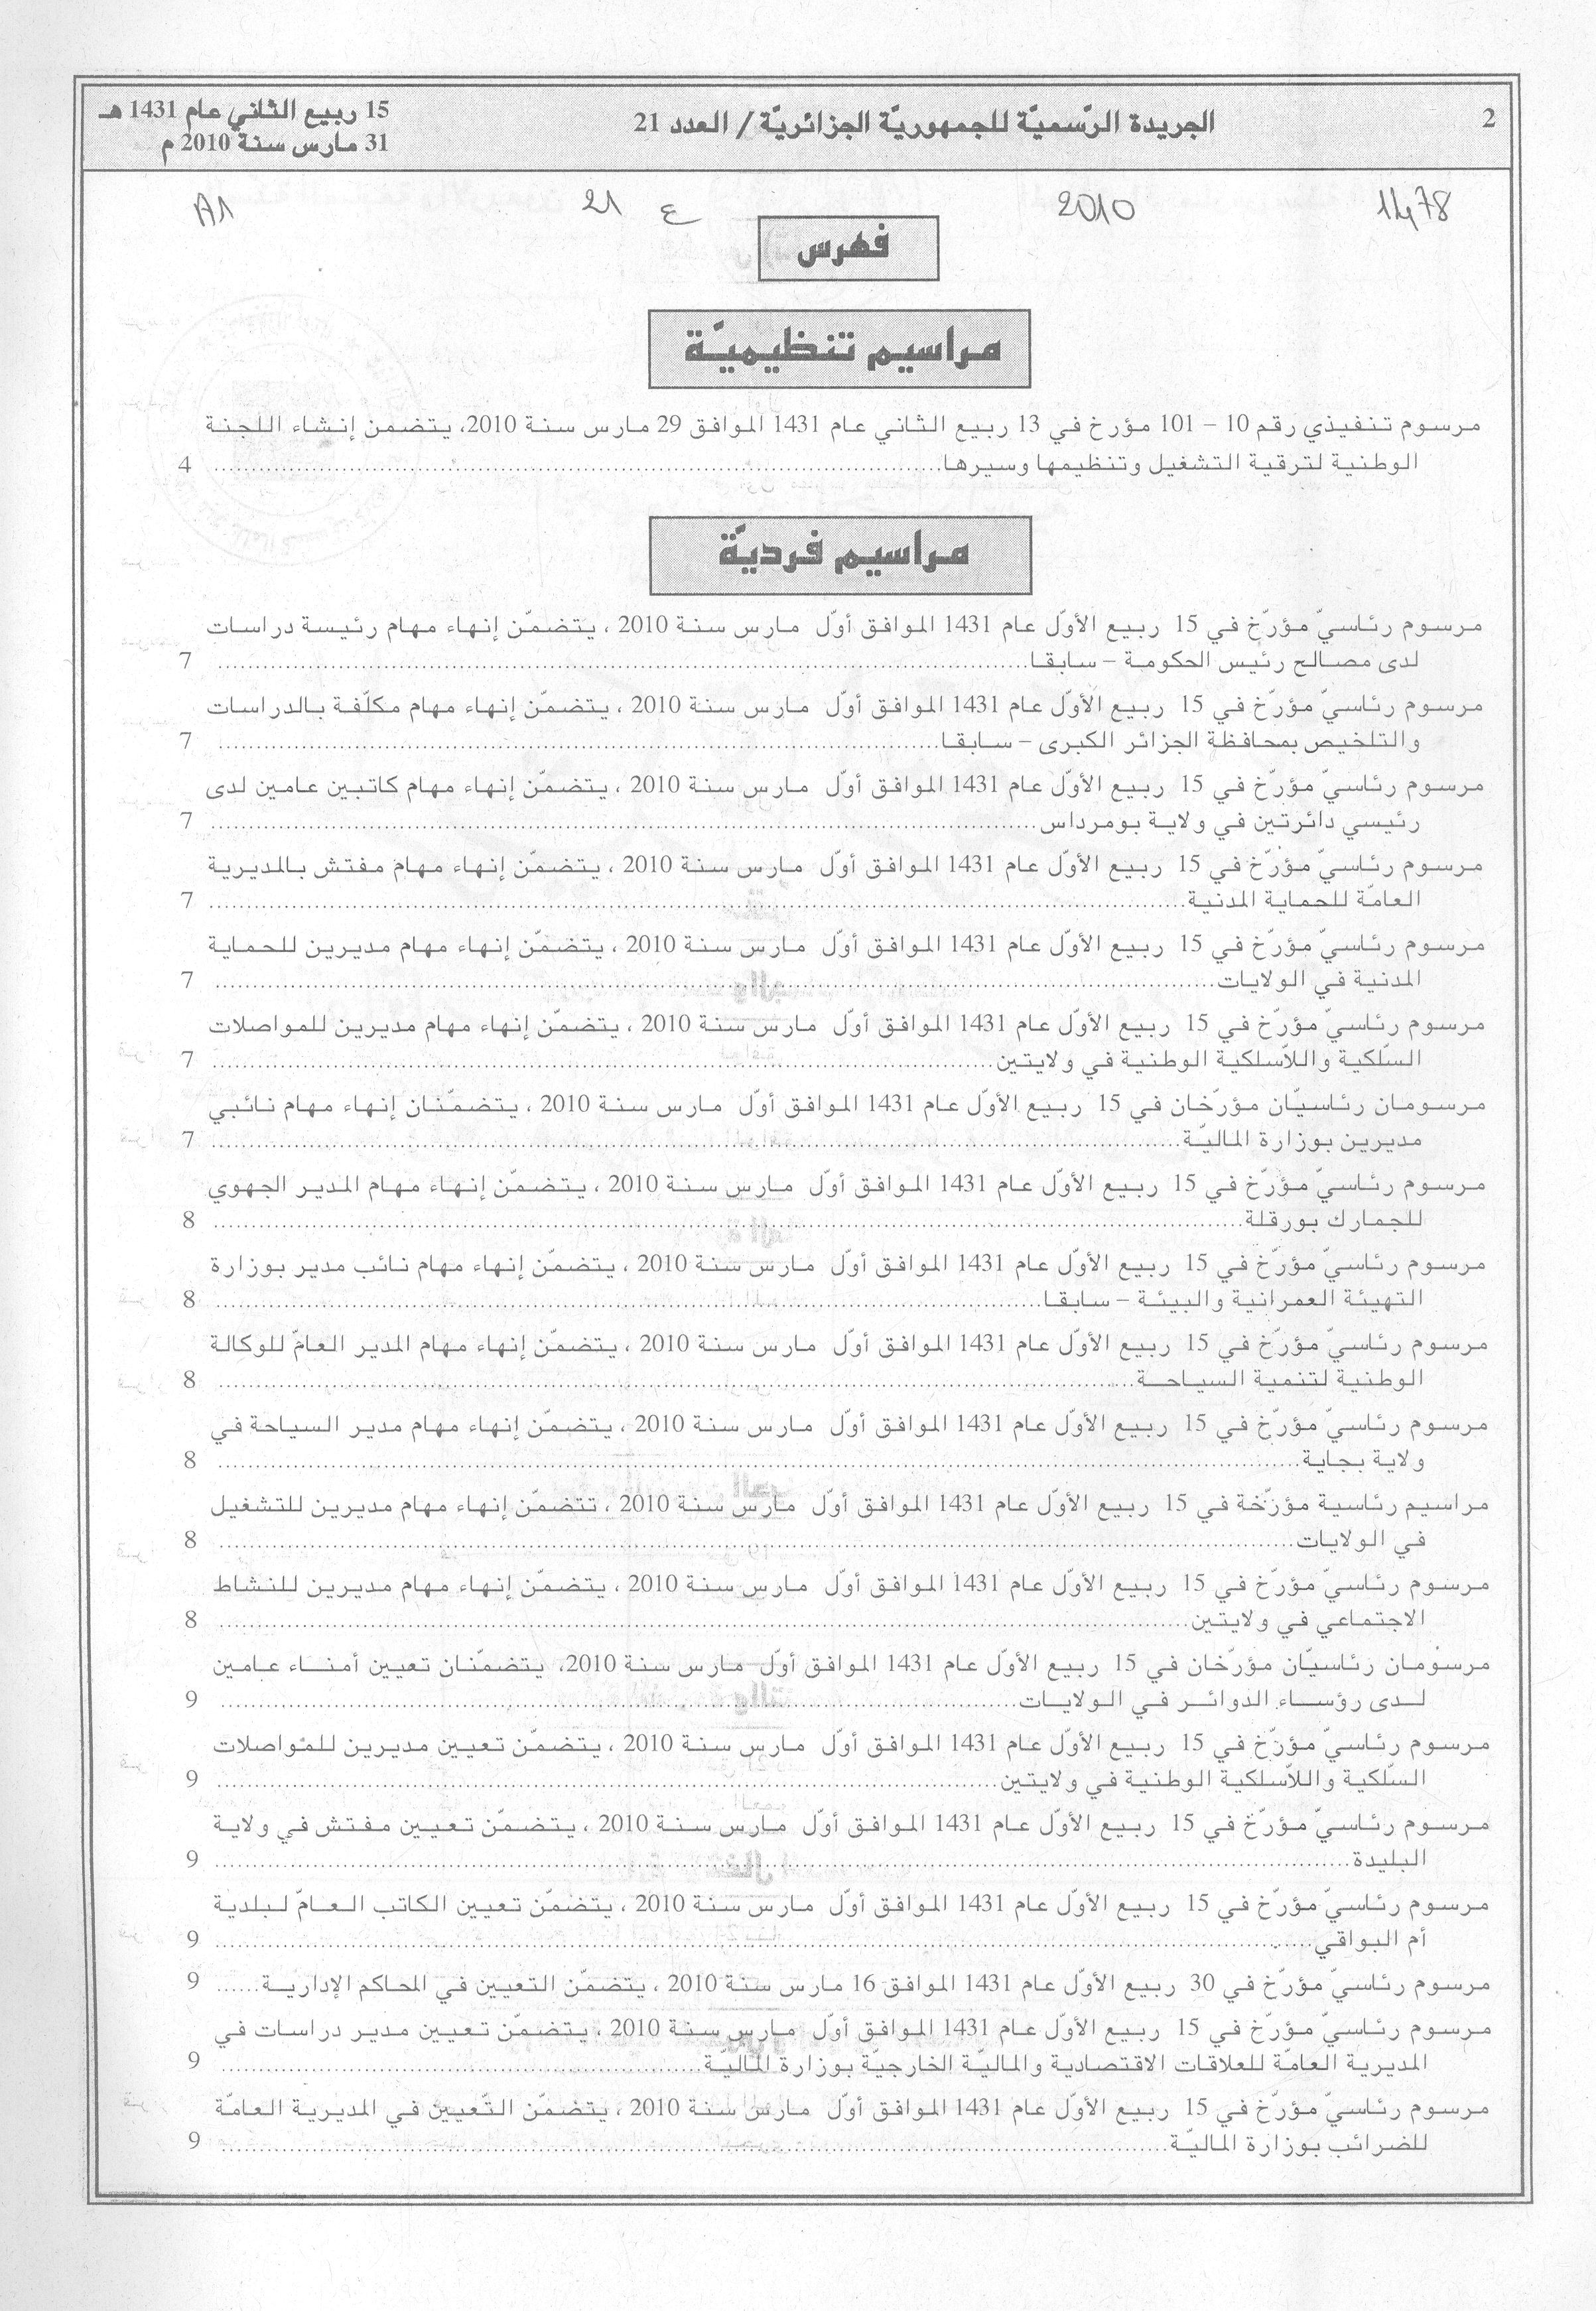 2
الجريدة الرّسميّة للجمهوريّة الجزائريّة / العدد 21
15 ربيع الثاني عام 1431 هـ
31 مارس سنة 2010 م
1478 2010 ع 21 A1
فهرس
مراسيم تنظيميّة
مرسوم تنفيذي رقم 10 – 101 مؤرخ في 13 ربيع الثاني عام 1431 الموافق 29 مارس سنة 2010، يتضمن إنشاء اللجنة
الوطنية لترقية التشغيل وتنظيمها وسيرها.................... 4
مراسيم فرديّة
مرسوم رئاسيّ مؤرّخ في 15 ربيع الأوّل عام 1431 الموافق أوّل مارس سنة 2010 ، يتضمّن إنهاء مهام رئيسة دراسات
لدى مصالح رئيس الحكومة – سابقا.................... 7
مرسوم رئاسيّ مؤرّخ في 15 ربيع الأوّل عام 1431 الموافق أوّل مارس سنة 2010 ، يتضمّن إنهاء مهام مكلّفة بالدراسات
والتلخيص بمحافظة الجزائر الكبرى – سابقا.................... 7
مرسوم رئاسيّ مؤرّخ في 15 ربيع الأوّل عام 1431 الموافق أوّل مارس سنة 2010 ، يتضمّن إنهاء مهام كاتبين عامين لدى
رئيسي دائرتين في ولاية بومرداس.................... 7
مرسوم رئاسيّ مؤرّخ في 15 ربيع الأوّل عام 1431 الموافق أوّل مارس سنة 2010 ، يتضمّن إنهاء مهام مفتش بالمديرية
العامّة للحماية المدنية.................... 7
مرسوم رئاسيّ مؤرّخ في 15 ربيع الأوّل عام 1431 الموافق أوّل مارس سنة 2010 ، يتضمّن إنهاء مهام مديرين للحماية
المدنية في الولايات.................... 7
مرسوم رئاسيّ مؤرّخ في 15 ربيع الأوّل عام 1431 الموافق أوّل مارس سنة 2010 ، يتضمّن إنهاء مهام مديرين للمواصلات
السّلكية واللاّسلكية الوطنية في ولايتين.................... 7
مرسومان رئاسيّان مؤرّخان في 15 ربيع الأوّل عام 1431 الموافق أوّل مارس سنة 2010 ، يتضمّنان إنهاء مهام نائبي
مديرين بوزارة الماليّة.................... 7
مرسوم رئاسيّ مؤرّخ في 15 ربيع الأوّل عام 1431 الموافق أوّل مارس سنة 2010 ، يتضمّن إنهاء مهام المدير الجهوي
للجمارك بورقلة.................... 8
مرسوم رئاسيّ مؤرّخ في 15 ربيع الأوّل عام 1431 الموافق أوّل مارس سنة 2010 ، يتضمّن إنهاء مهام نائب مدير بوزارة
التهيئة العمرانية والبيئة – سابقا.................... 8
مرسوم رئاسيّ مؤرّخ في 15 ربيع الأوّل عام 1431 الموافق أوّل مارس سنة 2010 ، يتضمّن إنهاء مهام المدير العامّ للوكالة
الوطنية لتنمية السياحة.................... 8
مرسوم رئاسيّ مؤرّخ في 15 ربيع الأوّل عام 1431 الموافق أوّل مارس سنة 2010 ، يتضمّن إنهاء مهام مدير السياحة في
ولاية بجاية.................... 8
مراسيم رئاسية مؤرّخة في 15 ربيع الأوّل عام 1431 الموافق أوّل مارس سنة 2010 ، تتضمّن إنهاء مهام مديرين للتشغيل
في الولايات.................... 8
مرسوم رئاسيّ مؤرّخ في 15 ربيع الأوّل عام 1431 الموافق أوّل مارس سنة 2010 ، يتضمّن إنهاء مهام مديرين للنشاط
الاجتماعي في ولايتين.................... 8
مرسومان رئاسيّان مؤرّخان في 15 ربيع الأوّل عام 1431 الموافق أوّل مارس سنة 2010، يتضمّنان تعيين أمناء عامين
لدى رؤساء الدوائر في الولايات.................... 9
مرسوم رئاسيّ مؤرّخ في 15 ربيع الأوّل عام 1431 الموافق أوّل مارس سنة 2010 ، يتضمّن تعيين مديرين للمواصلات
السّلكية واللاّسلكية الوطنية في ولايتين.................... 9
مرسوم رئاسيّ مؤرّخ في 15 ربيع الأوّل عام 1431 الموافق أوّل مارس سنة 2010 ، يتضمّن تعيين مفتش في ولاية
البليدة.................... 9
مرسوم رئاسيّ مؤرّخ في 15 ربيع الأوّل عام 1431 الموافق أوّل مارس سنة 2010 ، يتضمّن تعيين الكاتب العامّ لبلدية
أم البواقي.................... 9
مرسوم رئاسيّ مؤرّخ في 30 ربيع الأوّل عام 1431 الموافق 16 مارس سنة 2010 ، يتضمّن التعيين في المحاكم الإدارية...... 9
مرسوم رئاسيّ مؤرّخ في 15 ربيع الأوّل عام 1431 الموافق أوّل مارس سنة 2010 ، يتضمّن تعيين مدير دراسات في
المديرية العامّة للعلاقات الاقتصادية والماليّة الخارجيّة بوزارة الماليّة.................... 9
مرسوم رئاسيّ مؤرّخ في 15 ربيع الأوّل عام 1431 الموافق أوّل مارس سنة 2010 ، يتضمّن التّعيين في المديرية العامّة
للضرائب بوزارة الماليّة.................... 9